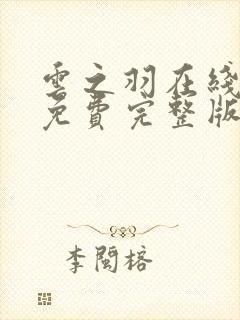 雲之羽在綫
免費完整版
李閩榕